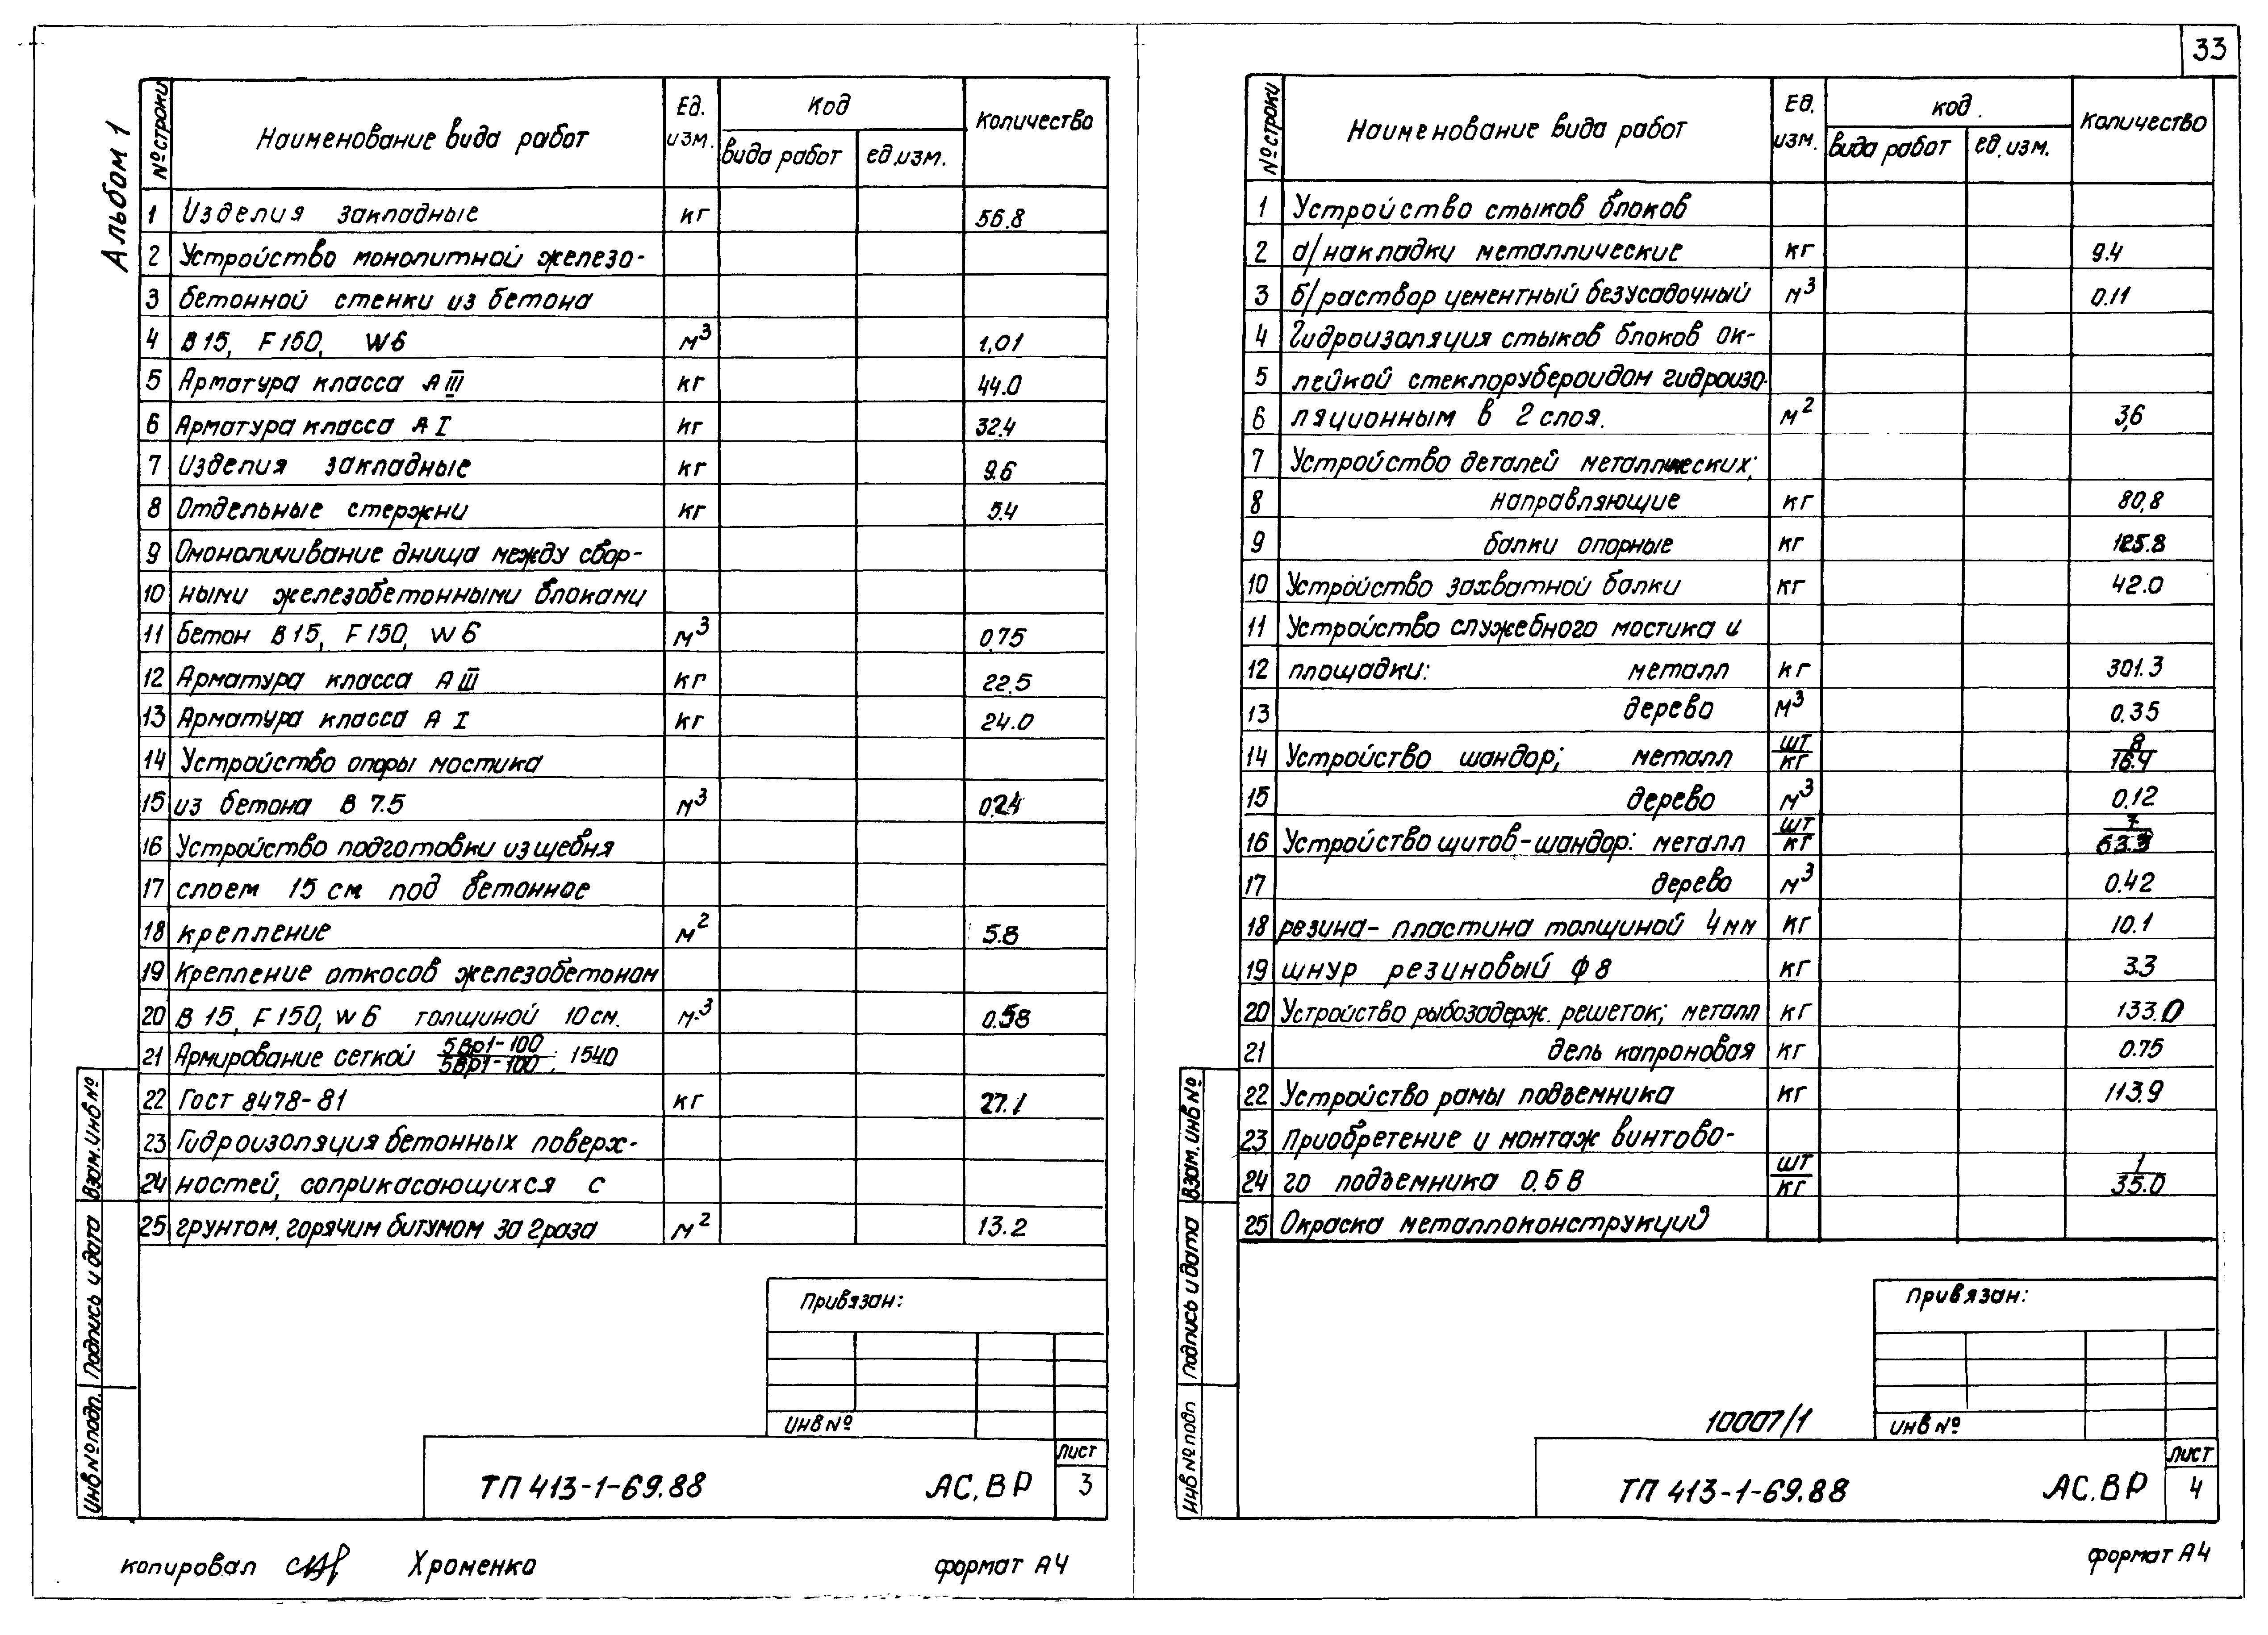 33
Альбом 1
№ строки Наименование вида работ Ед. изм. Код вида работ ед.изм. Количество
1 Изделия закладные кг 56.8
2 Устройство монолитной железо-
3 бетонной стенки из бетона
4 В 15, F 150, W6 м³ 1,01
5 Арматура класса А III кг 44.0
6 Арматура класса А I кг 32.4
7 Изделия закладные кг 9.6
8 Отдельные стержни кг 5.4
9 Омоноличивание днища между сбор-
10 ными железобетонными блоками
11 бетон В 15, F 150, W 6 м³ 0.75
12 Арматура класса А III кг 22.5
13 Арматура класса А I кг 24.0
14 Устройство опоры мостика
15 из бетона В 7.5 м³ 0.24
16 Устройство подготовки из щебня
17 слоем 15 см под бетонное
18 крепление м² 5.8
19 Крепление откосов железобетоном
20 В 15, F 150, W 6 толщиной 10 см. м³ 0.58
21 Армирование сеткой 5Вр1-100/5Вр1-100; 1540
22 Гост 8478-81 кг 27.1
23 Гидроизоляция бетонных поверх-
24 ностей, соприкасающихся с
25 грунтом, горячим битумом за 2 раза м² 13.2
Привязан:
Инв №
ТП 413-1-69.88 АС.ВР Лист 3
Взам. инв №
Подпись и дата
Инв № подл.
копировал Хроменко формат А4
№ строки Наименование вида работ Ед. изм. Код. вида работ ед.изм. Количество
1 Устройство стыков блоков
2 а/ накладки металлические кг 9.4
3 б/ раствор цементный безусадочный м³ 0.11
4 Гидроизоляция стыков блоков ок-
5 лейкой стеклорубероидом гидроизо-
6 ляционным в 2 слоя. м² 3,6
7 Устройство деталей металлических:
8 направляющие кг 80,8
9 балки опорные кг 125.8
10 Устройство захватной балки кг 42.0
11 Устройство служебного мостика и
12 площадки: металл кг 301.3
13 дерево м³ 0.35
14 Устройство шандор; металл шт/кг 8/16.4
15 дерево м³ 0.12
16 Устройство щитов-шандор: металл шт/кг 7/63.3
17 дерево м³ 0.42
18 резина-пластина толщиной 4 мм кг 10.1
19 шнур резиновый ф 8 кг 3.3
20 Устройство рыбозадерж. решеток; металл кг 133.0
21 дель капроновая кг 0.75
22 Устройство рамы подъемника кг 113.9
23 Приобретение и монтаж винтово-
24 го подъемника 0.5 В шт/кг 1/35.0
25 Окраска металлоконструкций
Привязан:
Инв №
10007/1
ТП 413-1-69.88 АС.ВР Лист 4
Взам. инв №
Подпись и дата
Инв № подл
формат А4